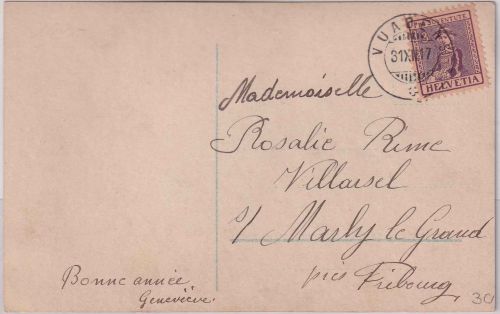 PRO JUVENTUTE
HELVETIA
31.XII.17
Mademoiselle
Rosalie Rime
Villarsel
s/ Marly le Grand
près Fribourg
Bonne année
Geneviève.
30